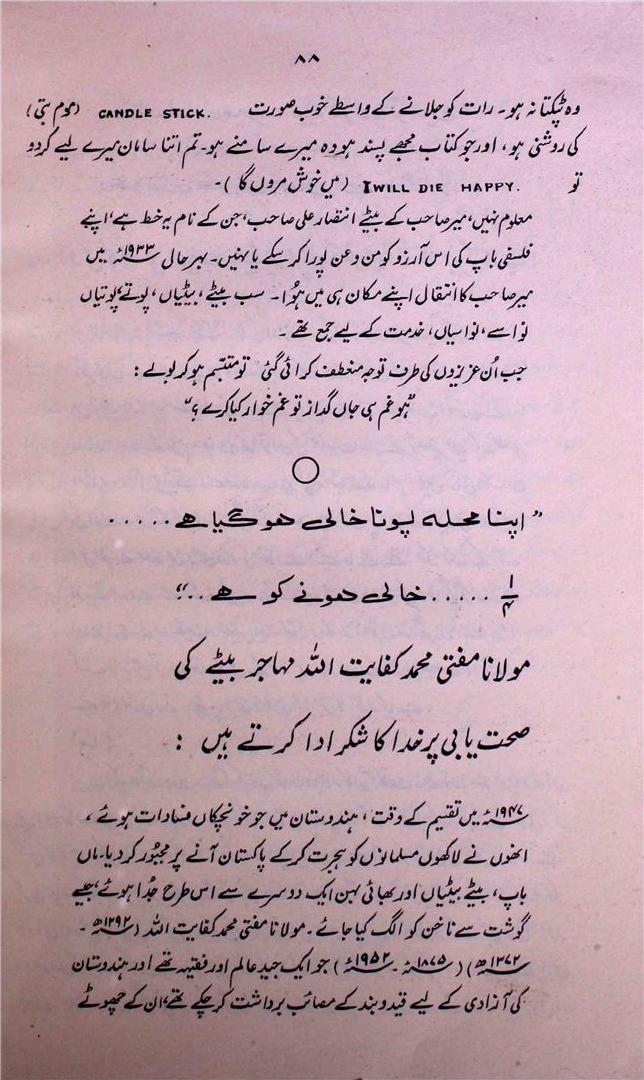 ۸۸
وہ ٹپکتا نہ ہو۔ رات کو جلانے کے واسطے خوب صورت CANDLE STICK. (موم بتی)
کی روشنی ہو، اور جو کتاب مجھے پسند ہو وہ میرے سامنے ہو۔ تم اتنا سامان میرے لیے کردو
تو I WILL DIE HAPPY. (میں خوش مروں گا)۔
معلوم نہیں، میر صاحب کے بیٹے انتصار علی صاحب، جن کے نام یہ خط ہے، اپنے
فلسفی باپ کی اس آرزو کو من و عن پورا کرسکے یا نہیں۔ بہرحال ۱۹۳۳ء میں
میر صاحب کا انتقال اپنے مکان ہی میں ہُوا۔ سب بیٹے، بیٹیاں، پوتے، پوتیاں
نواسے، نواسیاں، خدمت کے لیے جمع تھے۔
جب اُن عزیزوں کی طرف توجہ منعطف کرائی گئی تو متبسّم ہوکر بولے:
"ہو غم ہی جاں گداز تو غم خوار کیا کرے؟"
"اپنا محلہ پونا خالی ہوگیا ہے.....
۱/۴ ..... خالی ہونے کو ہے.."
مولانا مفتی محمد کفایت اللہ مہاجر بیٹے کی
صحت یابی پر خدا کا شکر ادا کرتے ہیں:
۱۹۴۷ء میں تقسیم کے وقت، ہندوستان میں جو خونچکاں فسادات ہوئے،
انھوں نے لاکھوں مسلمانوں کو ہجرت کرکے پاکستان آنے پر مجبُور کردیا۔ ماں
باپ، بیٹے بیٹیاں اور بھائی بہن ایک دوسرے سے اس طرح جُدا ہوئے، جیسے
گوشت سے ناخن کو الگ کیا جائے۔ مولانا مفتی محمد کفایت اللہ (۱۲۹۲ھ۔
۱۳۷۲ھ) (۱۸۷۵ء۔ ۱۹۵۲ء) جو ایک جید عالم اور فقیہہ تھے اور ہندوستان
کی آزادی کے لیے قید و بند کے مصائب برداشت کرچکے تھے، ان کے چھوٹے